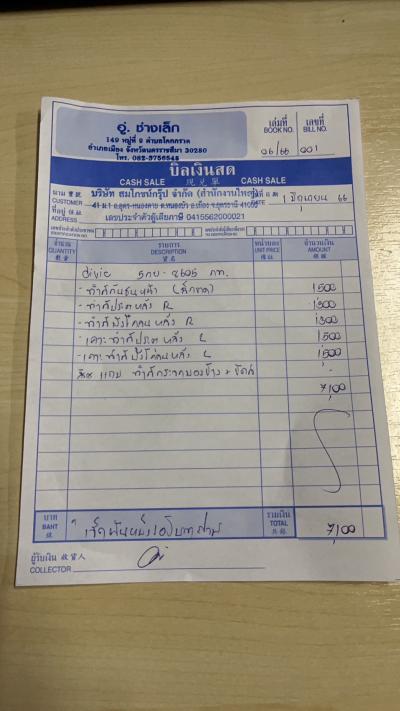 อู่. ช่างเล็ก
149 หมู่ที่ 9 ตำบลโคกกรวด
อำเภอเมือง จังหวัดนครราชสีมา 30280
โทร. 082-3756545
เล่มที่ เลขที่
BOOK NO. BILL NO.
06/66 001
บิลเงินสด
CASH SALE 現兑單 CASH SALE
นาม 寶號 บริษัท สมโภกน์กรุ๊ป จำกัด (สำนักงานใหญ่) วันที่
CUSTOMER 41 ม.1 ถ.อุดร-หนองคาย ต.หนองบัว อ.เมือง จ.อุดรธานี 41000 DATE 1 มิถุนายน 66
ที่อยู่ 住址 เลขประจำตัวผู้เสียภาษี 0415562000021
ADDRESS
จำนวน รายการ หน่วยละ จำนวนเงิน
QUANTITY DESCRIPTION UNIT PRICE AMOUNT
數量 貨名 價錢 銀碼
civic 5กย-2605 กท.
- ทำสีกันชนหลัง 1500
- ทำสีประตูหลัง R 1300
- ทำสีบังโคลนหลัง R 1300
- เคาะทำสีประตูหลัง L 1500
- เคาะทำสีบังโคลนหลัง L 1,500
แถม ทำสีกระจกมองข้าง + ขัดสี -
7,100
บาท รวมเงิน
BAHT เจ็ดพันหนึ่งร้อยบาทถ้วน TOTAL 7,100
銖 共銀
ผู้รับเงิน 收貨人
COLLECTOR